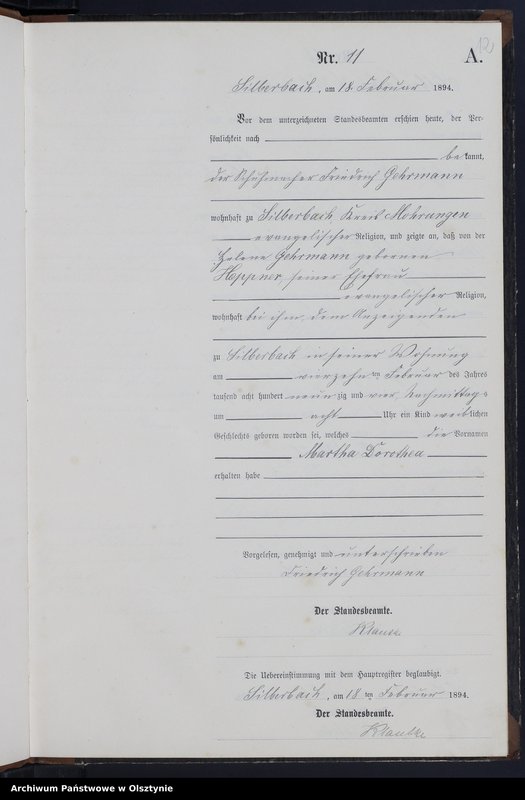 12
Nr. 11 A.
Silberbach, am 18. Februar 1894.
Vor dem unterzeichneten Standesbeamten erschien heute, der Per-
sönlichkeit nach
bekannt,
der Schuhmacher Friedrich Gehrmann
wohnhaft zu Silberbach Kreis Mohrungen
evangelischer Religion, und zeigte an, daß von der
Helene Gehrmann geborenen
Heppner, seiner Ehefrau
evangelischer Religion,
wohnhaft bei ihm, dem Anzeigenden
zu Silberbach in seiner Wohnung
am vierzehn ten Februar des Jahres
tausend acht hundert neunzig und vier, Nachmittags
um acht Uhr ein Kind weiblichen
Geschlechts geboren worden sei, welches die Vornamen
Martha Dorothea
erhalten habe
Vorgelesen, genehmigt und unterschrieben
Friedrich Gehrmann
Der Standesbeamte.
Die Uebereinstimmung mit dem Hauptregister beglaubigt.
Silberbach, am 18 ten Februar 1894.
Der Standesbeamte.
Archiwum Państwowe w Olsztynie